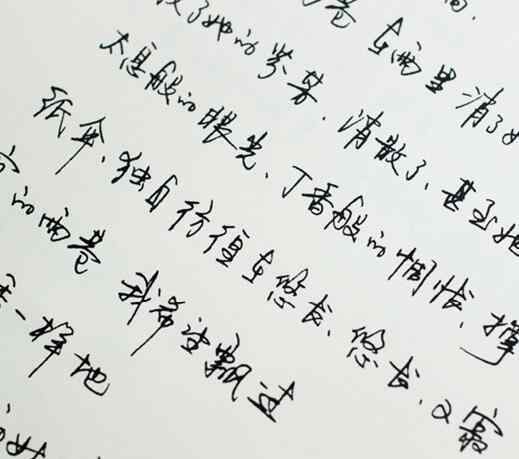 间.
巷 在雨里 消了她
散了她的芬芳，消散了，甚至她
太息般的眼光、丁香般的惆怅，撑
纸伞、独自彷徨在悠长、悠长、又寂
的雨巷 我希望飘过
一样地